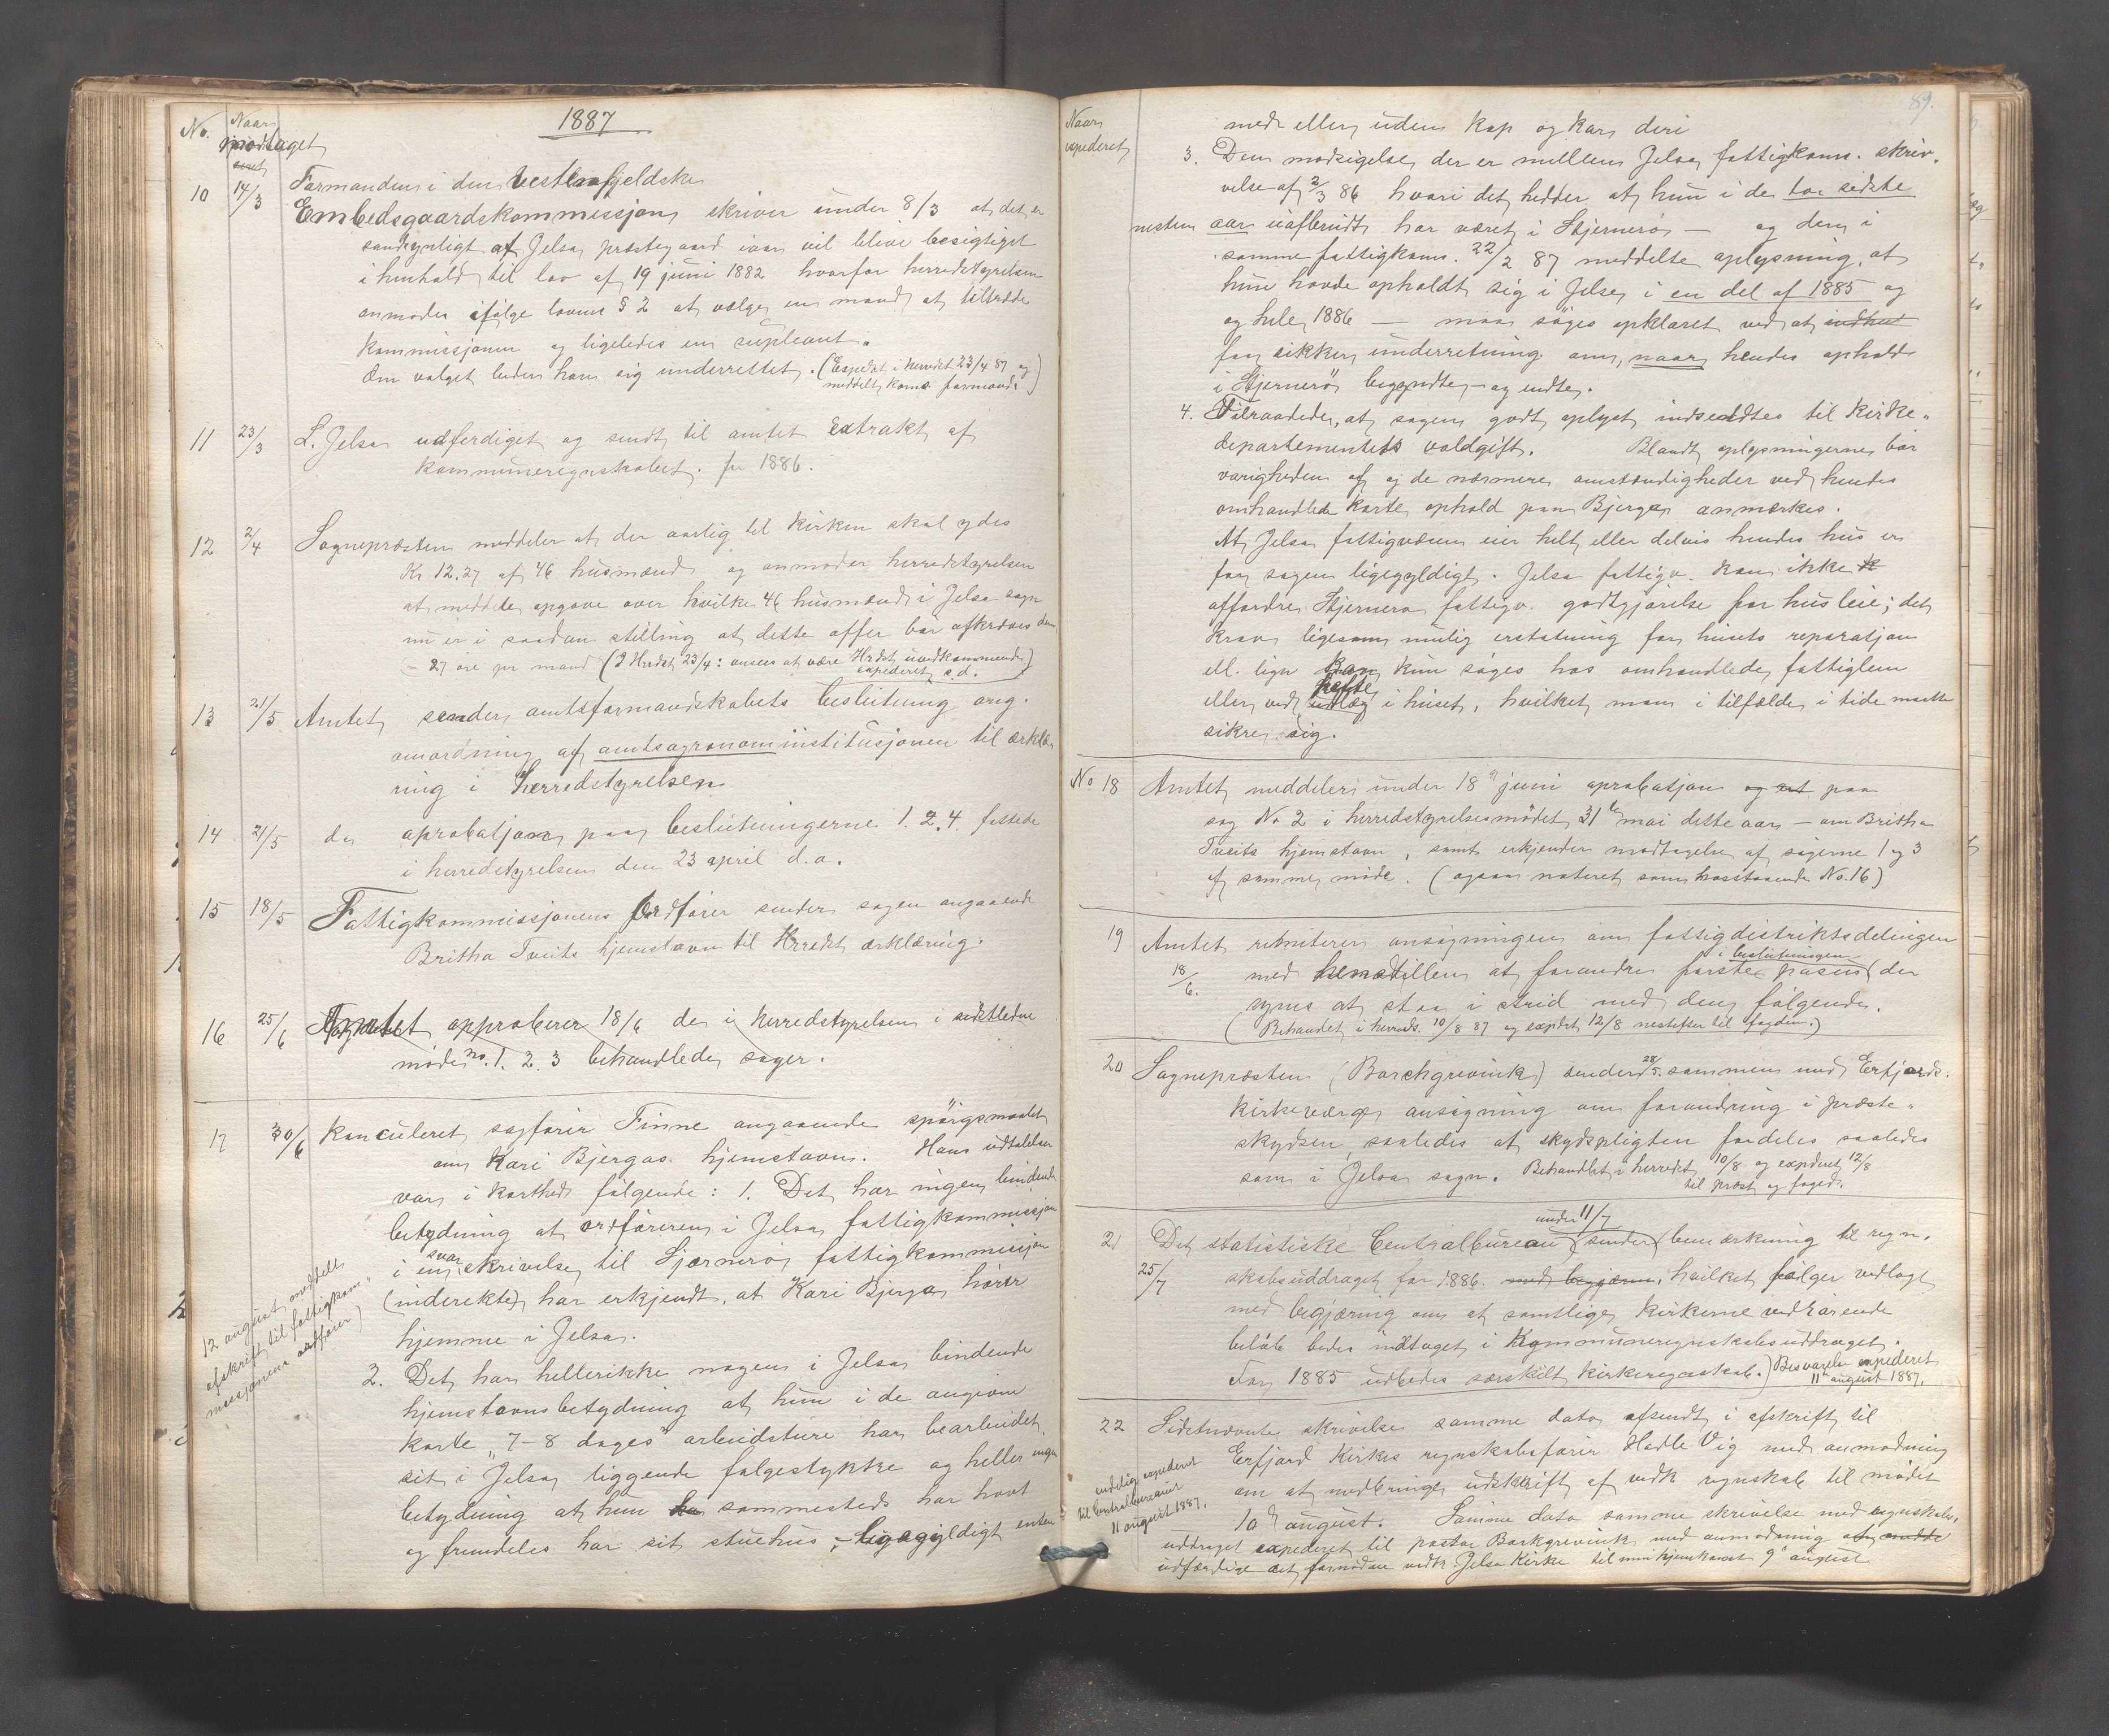 No. Naar modtaget
1887
10 14/3 Formanden i den Vestenfjeldske
Embedsgaardskommissjon skriver under 8/3 at det er
sandsynligt at Jelsa prestegaard iaar vil blive besigtiget
i henhold til lov af 19 juni 1882 hvorfor herredstyrelsen
anmodes ifølge lovens § 2 at vælge en mand at tiltræde
kommissjonen og ligeledes en supleant.
Om valget beder han sig underrettet. (Expedet i herredet 23/4 87 og
meddelt koms formand.)
11 23/3 L. Jelsa udferdiget og sendt til amtet extrakt af
kommuneregnskabet. for 1886.
12 2/4 Sognepræsten meddeler at der aarlig til kirken skal ydes
Kr 12.27 af 46 husmænd og anmoder herredstyrelsen
at meddele opgave over hvilke 46 husmænd i Jelsa sogn
nu er i saadan stilling at dette offer bør afkræves dem
- 27 øre pr mand (I Herdet 23/4: ansees at være Hrdet uvedkommende)
expederet s.d.
13 21/5 Amtet sender amtsformandskabets beslutning ang.
omordning af amtsagronominstitusjonen til erklæ-
ring i Herredstyrelsen
14 21/5 do aprobatjon paa beslutningerne 1. 2. 4. fattede
i herredstyrelsen den 23 april d.a.
15 18/5 Fattigkommissjonens ordfører sender sagen angaaende
Britha Tveits hjemstavn til Herredets erklæring.
16 25/6 Amtet approberer 18/6 de i herredstyrelsen i sidstledne
møde no. 1. 2. 3 behandlede sager.
17 30/6 Konculeret sagfører Finne angaaende spørgsmaalet
om Kari Bjergas hjemstavn. Hans udtalelser
var i korthed følgende: 1. Det har ingen bindende
betydning at ordføreren i Jelsa fattigkommissjon
i en svarskrivelse til Sjærnerø fattigkommissjon
(inderekte) har erkjendt, at Kari Bjerga hører
hjemme i Jelsa.
12 august meddelt
afskrift til fattigkom-
missjonens ordfører)
2. Det har hellerikke nogen i Jelsa bindende
hjemstavnsbetydning at hun i de angivne
korte "7-8 dages" arbeidsture har bearbeidet
sit i Jelsa liggende følgestykke og heller ingen
betydning at hun ha sammesteds har havt
og fremdeles har sit stuehus, - ligegyldigt enten
Naar expederet
89.
med eller uden kop og kar deri
3. Den modsigelse der er mellem Jelsa fattigkoms. skriv-
velse af 2/3 86 hvori det hedder at hun i de to sidste
nesten aar uafbrudt har været i Stjernerø — og den i
samme fattigkoms. 22/2 87 meddelte oplysning, at
hun havde opholdt sig i Jelse i en del af 1885 og
og hele 1886 — maa søges opklaret ved at indhen
faa sikker underretning om, naar hendes ophold
i Stjernerø begyndte og endte.
4. Tilraadede, at sagen godt oplyst indsendtes til Kirke-
departementets voldgift. Blandt oplysningerne bør
varigheden af og de nærmere omstændigheder ved hendes
omhandlede korte ophold paa Bjerga anmærkes.
At Jelsa fattigvæsen eier helt eller delvis hendes hus er
for sagen ligegyldigt. Jelsa fattigv. kan ikke k
affordre Stjernerø fattigv. godtgjørelse for husleie; det
krav ligesom mulig erstatning for husets reparatjon
el. lign kan kun søges hos omhandlede fattiglem
eller ved hefte i huset, hvilket man i tilfælde i tide maatte
sikre sig.
No 18 Amtet meddeler under 18 juni aprobatjon og at paa
sag No 2 i herredstyrelsesmødet 31te mai dette aar — om Britha
Tveits hjemstavn, samt erkjender modtagelse af sagerne 1 og 3
af samme møde. (ogsaa noteret som hosstaaende No. 16)
19 Amtet remiterer ansøgningen om fattigdistriktsdelingen
18/6. med henstillen at forandre første pasus i beslutningen (der
synes at staa i strid med den følgende.
(Behandlet i herreds. 10/8 87 og expdet 12/8 nestefter til fogden.)
20 Sognepræsten (Borchgrevink) sender 28/5. sammen med Erfjords
kirkeværge ansøgning om forandring i præste-
skydsen, saaledes at skydspligten fordeles saaledes
som i Jelsa sogn. Behandlet i herredet 10/8 og expederet 12/8
til præst og foged.
21 Det statistiske Centralbureau (sender under 11/7 bemærkning til regn-
25/7 skabsuddraget for 1886. med begjæring, hvilket følger vedlagt
med begjæring om at samtlige kirkerne vedkørende
beløb bedes indtaget i Kommuneregnskabsuddraget.
For 1885 udbedes særskilt kirkeregnskab.) Besvarelse expederet
11te august 1887.
22 Sidstnævnte skrivelse samme dato afsendt i afskrift til
Erfjord Kirkes regnskabsfører Hadle Vig med anmodning
om at medbringe udskrift af vedk regnskab til mødet
10de august. Samme dato samme skrivelse med regnskabs-
uddraget expederet til pastor Borkgrevink med anmodning at
udfærdige det fornødne vedk Jelsa Kirke til min hjemkomst 9de august
endelig expederet
til Centralbureauet
11 august 1887.